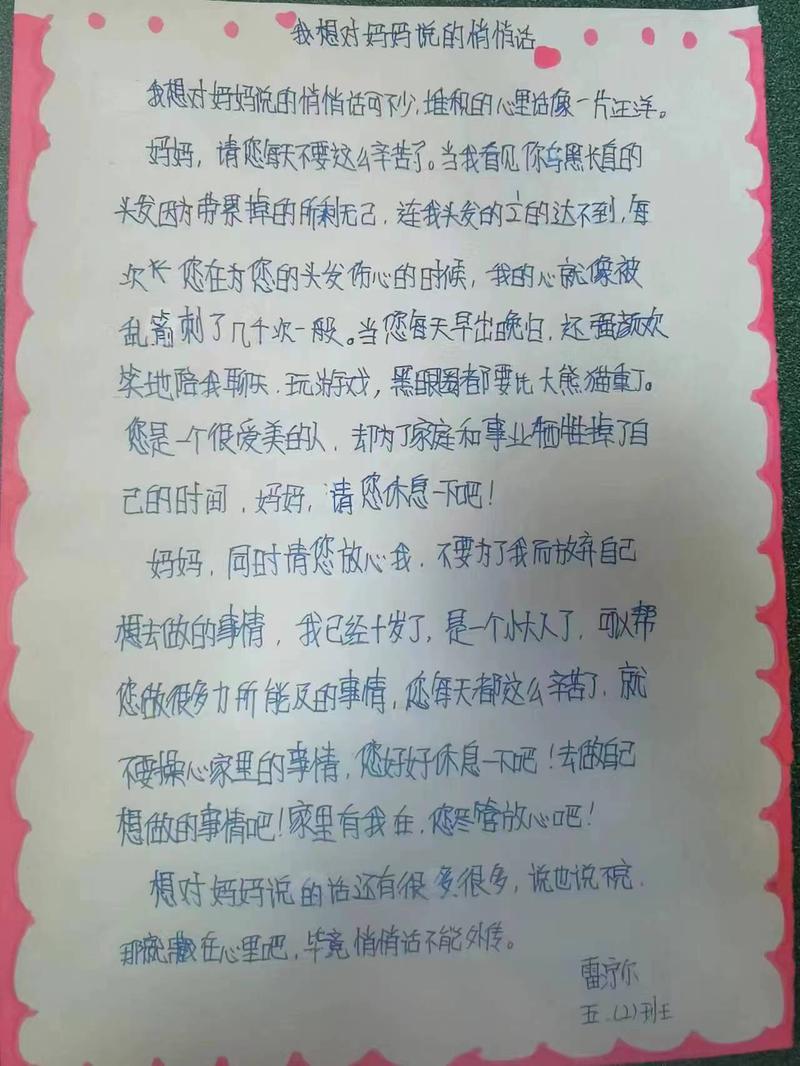 我想对妈妈说的悄悄话
我想对妈妈说的悄悄话可不少,堆积的心里话像一片汪洋。
妈妈,请您每天不要这么辛苦了。当我看见你乌黑长直的
头发因为带累掉的所剩无己,连我头发的 的达不到,每
次 您在为您的头发伤心的时候,我的心就像被
乱箭刺了几千次一般。当您每天早出晚归,还强颜欢
笑地陪我聊天、玩游戏,黑眼圈都要比大熊猫重了。
您是一个很爱美的人,却为了家庭和事业牺牲掉了自
己的时间,妈妈,请您休息一下吧!
妈妈,同时请您放心我,不要为了我而放弃自己
想去做的事情,我已经十岁了,是一个小大人了,可以帮
您做很多力所能及的事情,您每天都这么辛苦了,就
不要操心家里的事情,您好好休息一下吧!去做自己
想做的事情吧!家里有我在,您尽管放心吧!
想对妈妈说的话还有很多很多,说也说不完,
那就藏在心里吧,毕竟悄悄话不能外传。
雷 尔
五.(2)班